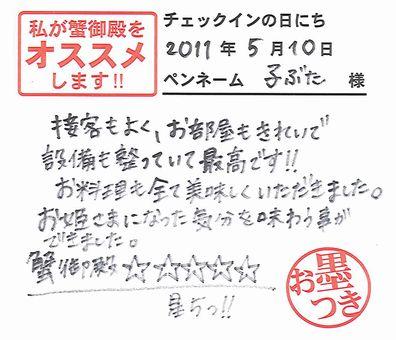 私が蟹御殿を
オススメ
します!!
チェックインの日にち
2011年5月10日
ペンネーム 子ぶた 様
接客もよく、お部屋もきれいで
設備も整っていて最高です!!
お料理も全て美味しくいただきました。
お姫さまになった気分を味わう事が
できました。
蟹御殿☆☆☆☆☆
星5つ!!
お墨つき